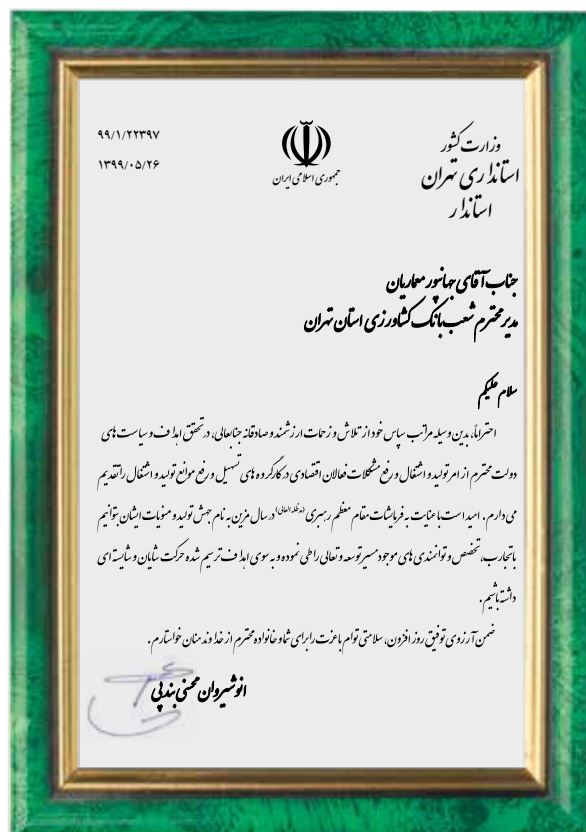 ۹۹/۱/۲۲۳۹۷
۱۳۹۹/۰۵/۲۶
جمهوری اسلامی ایران
وزارت کشور
استانداری تهران
استاندار
جناب آقای جهانپور معماریان
مدیر محترم شعب بانک کشاورزی استان تهران
سلام علیکم
احتراماً، بدین وسیله مراتب سپاس خود از تلاش و زحمات ارزشمند و صادقانه جنابعالی، در تحقق اهداف و سیاست های
دولت محترم از امر تولید و اشتغال و رفع مشکلات فعالان اقتصادی در کارگروه های تسهیل و رفع موانع تولید و اشتغال را تقدیم
می دارم. امید است با عنایت به فرمایشات مقام معظم رهبری (مدظله العالی) در سال مزین به نام جهش تولید و منویات ایشان بتوانیم
با تجارب، تخصص و توانمندی های موجود مسیر توسعه و تعالی را طی نموده و به سوی اهداف ترسیم شده حرکت شایان و شایسته ای
داشته باشیم.
ضمن آرزوی توفیق روز افزون، سلامتی توام با عزت را برای شما و خانواده محترم از خداوند منان خواستارم.
انوشیروان محسنی بندپی